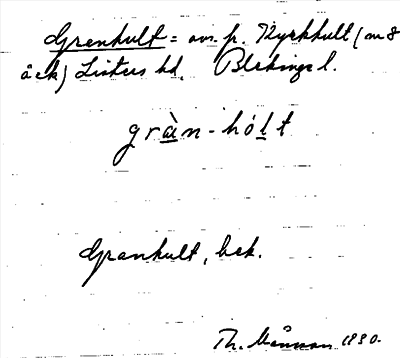 Grenhult = om. p. Kyrkhult (m 8
åck) Listers hd. Blekinge l.
gràn-hólt
Granhult, bek.
Th. Månsson 1930.